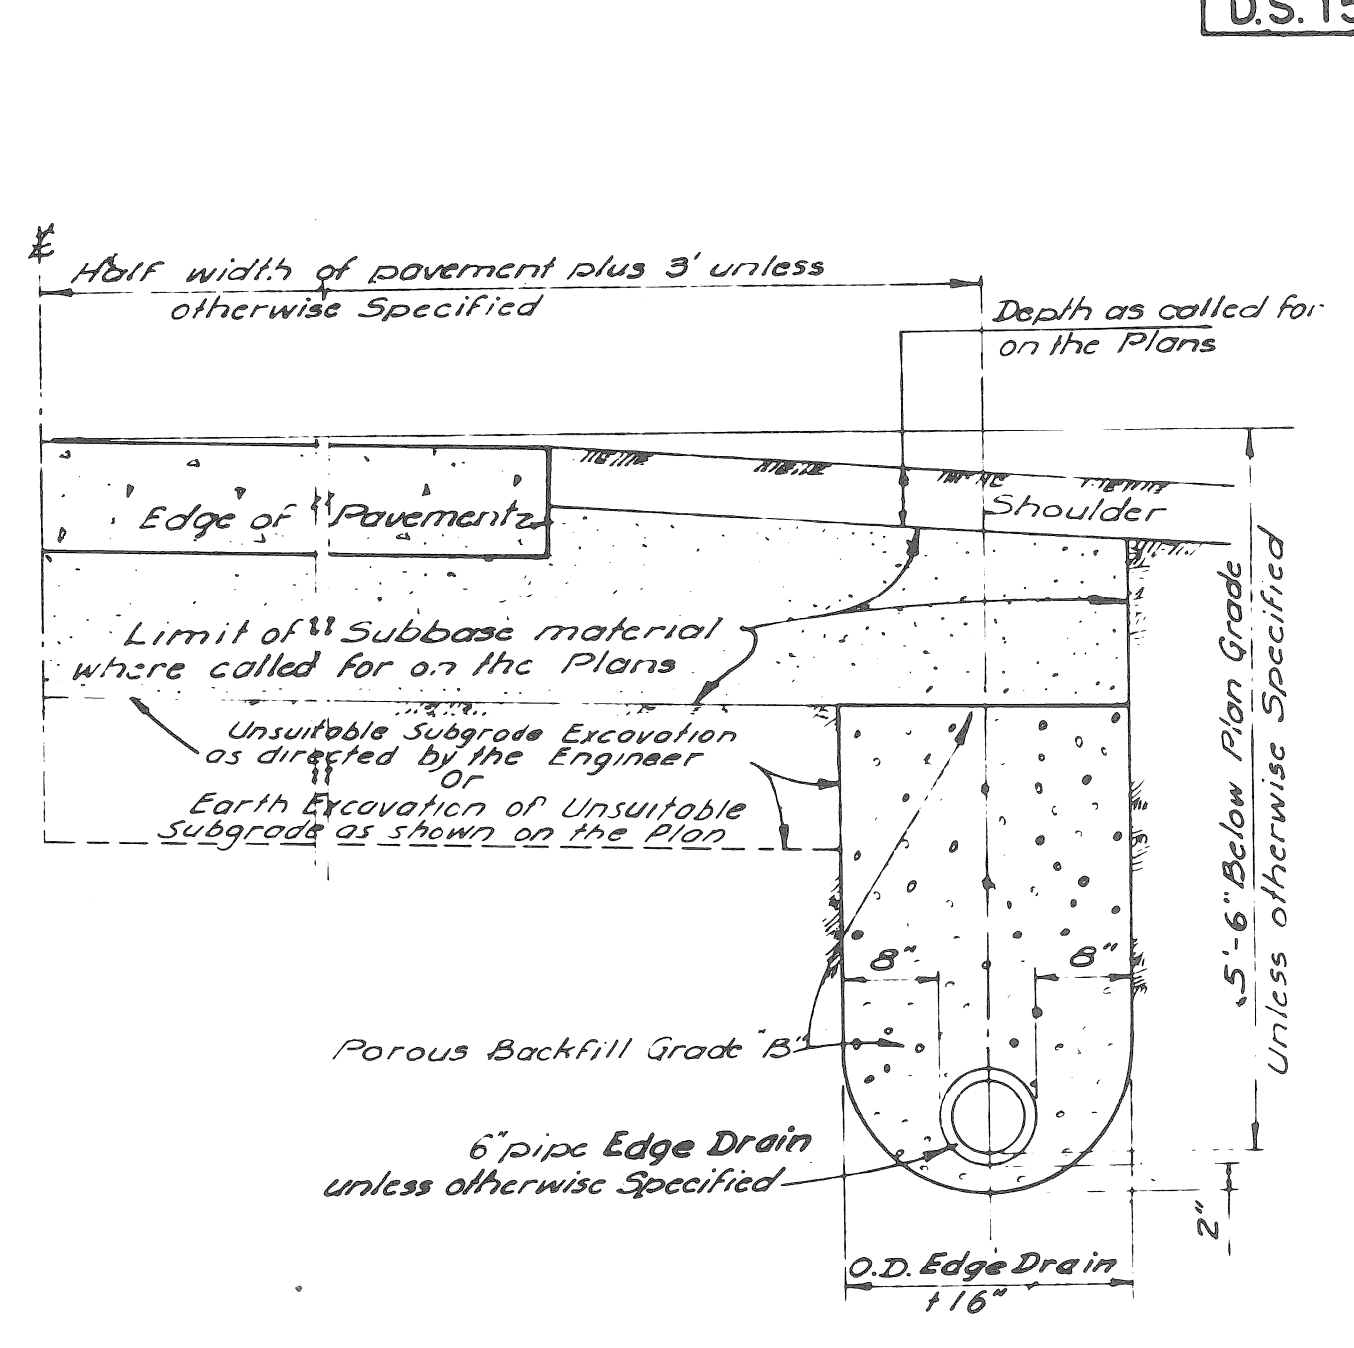 D.S. 15
℄
Half width of pavement plus 3' unless
otherwise Specified
Depth as called for
on the Plans
Shoulder
Edge of Pavement
Limit of Subbase material
where called for on the Plans
Unsuitable Subgrade Excavation
as directed by the Engineer
Or
Earth Excavation of Unsuitable
Subgrade as shown on the Plan
5'-6" Below Plan Grade
Unless otherwise Specified
8"
8"
Porous Backfill Grade "B"
6" pipe Edge Drain
unless otherwise Specified
2"
O.D. Edge Drain
+16"